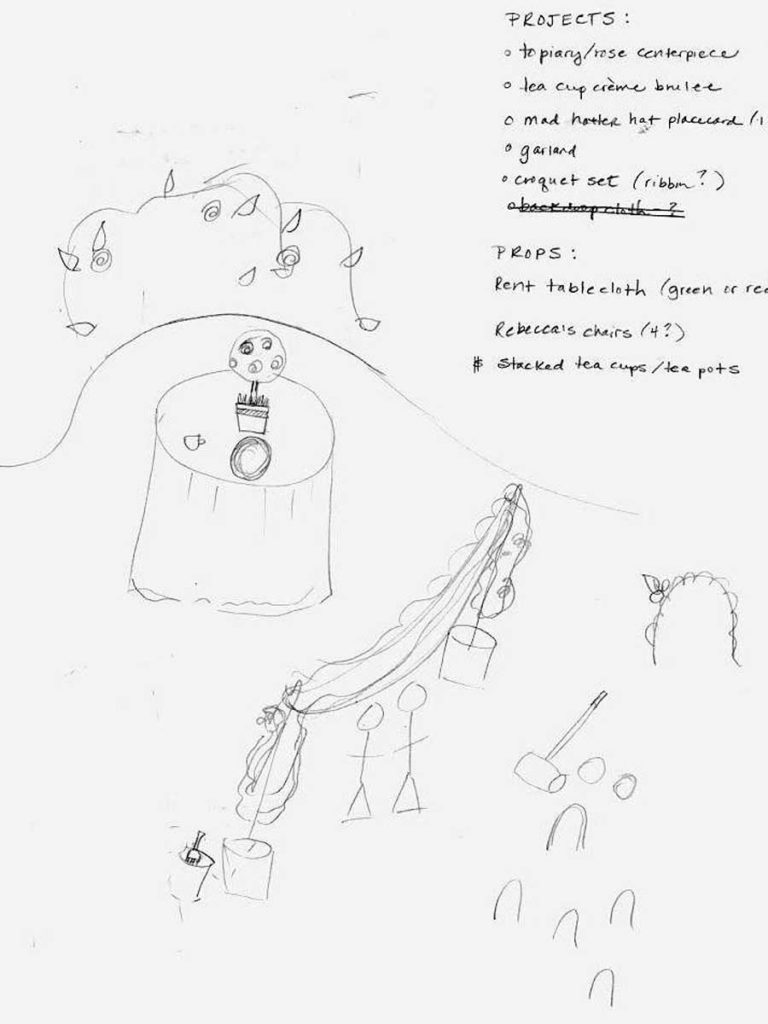 PROJECTS:
o topiary/rose centerpiece
o tea cup crème brulee
o mad hatter hat placecard (1
o garland
o croquet set (ribbon?)
o backdrop cloth - ?
PROPS:
Rent tablecloth (green or red
Rebecca's chairs (4?)
$ Stacked tea cups/tea pots